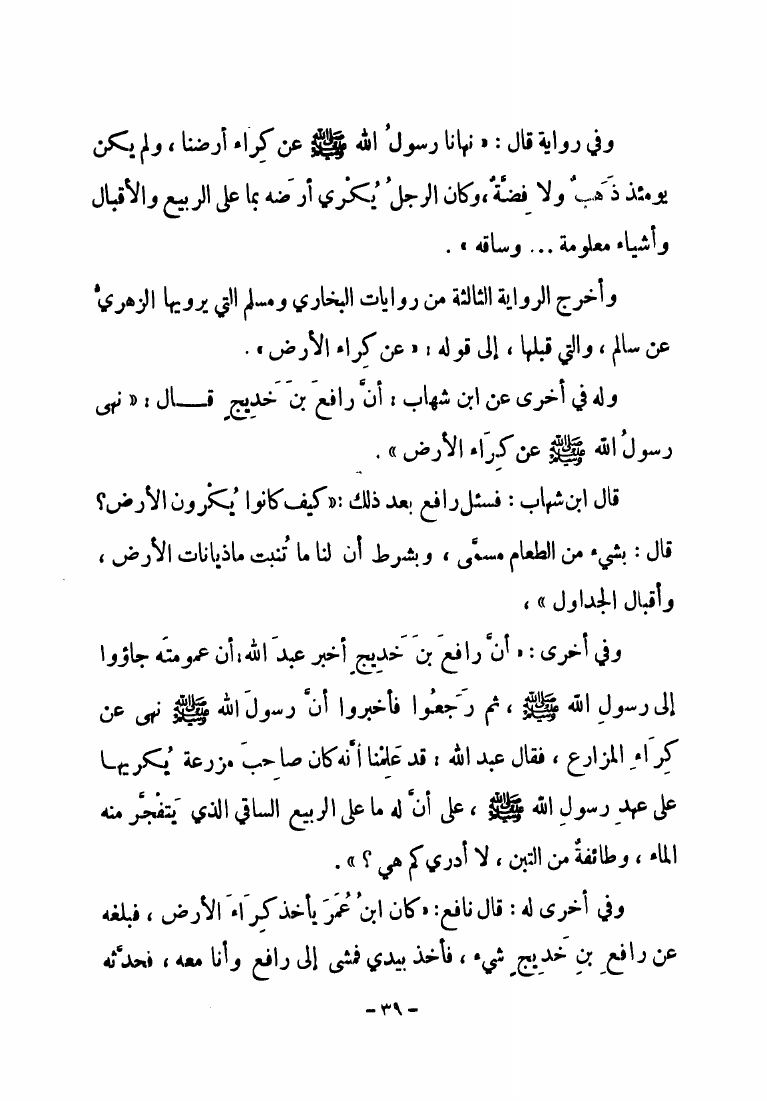 وفي رواية قال : « نهانا رسولُ الله ﷺ عن كِرَاء أرضنا ، ولم يكن
يومئذ ذَهَبٌ ولا فِضَّةٌ ، وكان الرجلُ يُكْري أرضَه بما على الربيع والأقبال
وأشياء معلومة ... وساقه » .
وأخرج الرواية الثالثة من روايات البخاري ومسلم التي يرويها الزهريُّ
عن سالم ، والتي قبلها ، إلى قوله : « عن كِراء الأرض » .
وله في أخرى عن ابن شهاب : أنَّ رافعَ بنَ خَدِيجٍ قــال : « نهى
رسولُ الله ﷺ عن كِرَاء الأرض » .
قال ابن شهاب : فسئل رافع بعد ذلك : « كيف كانوا يُكْرون الأرض؟
قال : بشيء من الطعام مسمَّى ، وبشرط أن لنا ما تُنبت ماذيانات الأرض ،
وأقبال الجداول » ،
وفي أخرى : « أنَّ رافعَ بنَ خَدِيجٍ أخبر عبدَ الله : أن عمومتَه جاؤوا
إلى رسولِ الله ﷺ ، ثم رَجَعُوا فأخبروا أنَّ رسولَ الله ﷺ نهى عن
كِرَاءِ المزارع ، فقال عبد الله : قد عَلِمْنا أنَّه كان صاحبَ مزرعة يُكريها
على عهدِ رسولِ الله ﷺ ، على أنَّ له ما على الربيع الساقي الذي يَتفْجَّر منه
الماء ، وطائفةٌ من التبن ، لا أدري كم هي ؟ » .
وفي أخرى له : قال نافع: « كان ابنُ عُمَرَ يأخذ كِرَاءَ الأرض ، فبلغه
عن رافعِ بنِ خَدِيجٍ شيء ، فأخذ بيدي فمشى إلى رافع وأنا معه ، فحدَّثه
- ٣٩ -